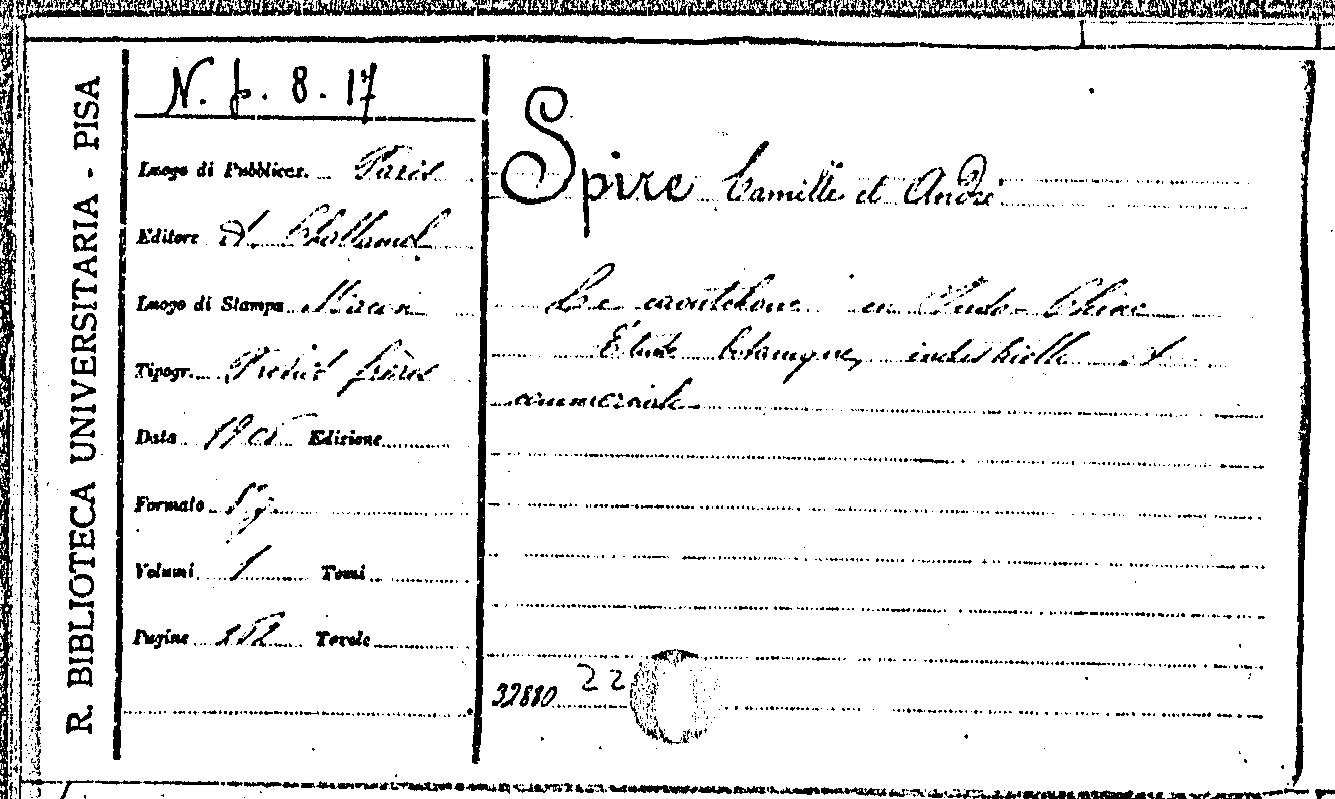 R. BIBLIOTECA UNIVERSITARIA - PISA
N. p. 8. 17
Luogo di Pubblicaz. Paris
Editore A. Challamel
Luogo di Stampa Macon
Tipogr. Protat frères
Data 190 Edizione
Formato 8º
Volumi 1 Tomi
Pagine 262 Tavole
Spire Camille et André
Le caoutchouc en Indo-Chine
Étude botanique, industrielle et
commerciale
32880 22